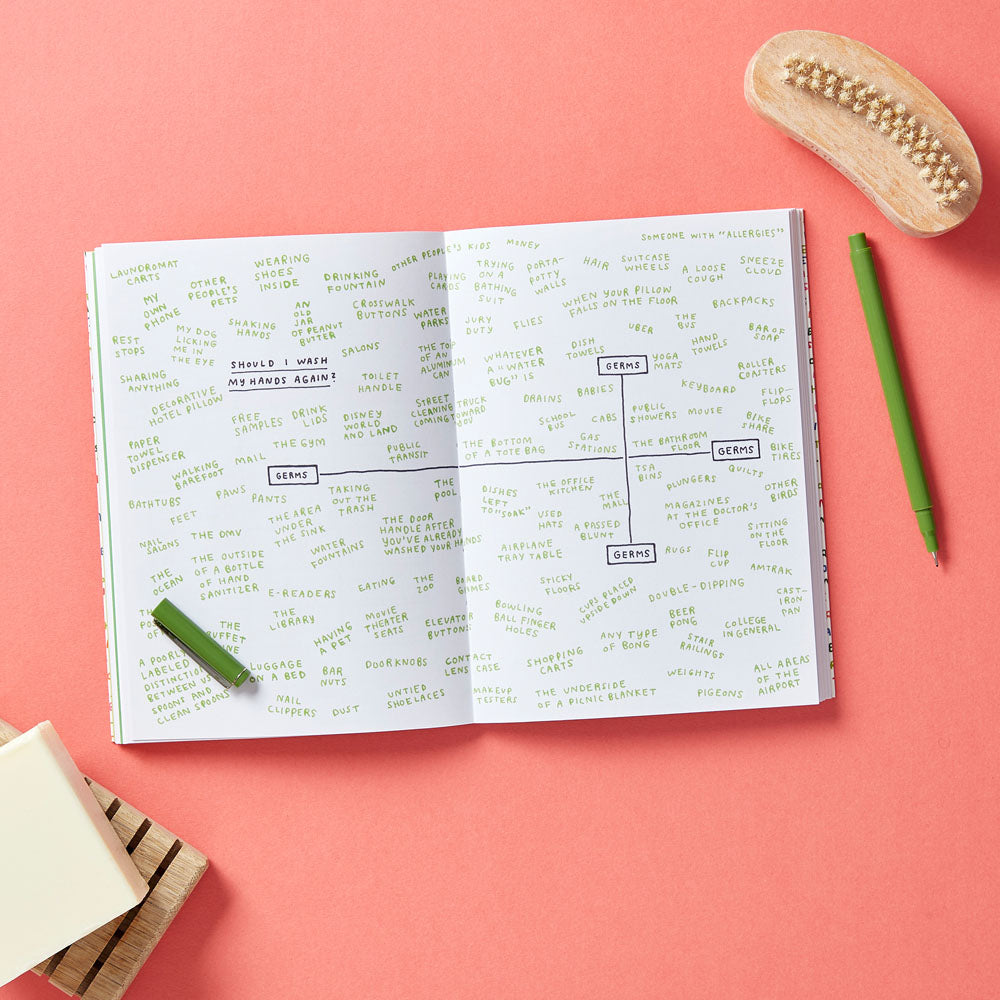 LAUNDROMAT
CARTS
OTHER
PEOPLE'S
PETS
WEARING
SHOES
INSIDE
DRINKING
FOUNTAIN
OTHER PEOPLE'S KIDS
MONEY
MY
OWN
PHONE
AN
OLD
JAR
OF PEANUT
BUTTER
CROSSWALK
BUTTONS
PLAYING
CARDS
REST
STOPS
MY DOG
LICKING
ME IN
THE EYE
SHAKING
HANDS
WATER
PARKS
SALONS
THE TOP
OF AN
ALUMINUM
CAN
SHOULD I WASH
MY HANDS AGAIN?
SHARING
ANYTHING
TOILET
HANDLE
DECORATIVE
HOTEL PILLOW
FREE
SAMPLES
DRINK
LIDS
DISNEY
WORLD
AND LAND
STREET
CLEANING TRUCK
COMING TOWARD
YOU
PAPER
TOWEL
DISPENSER
MAIL
THE GYM
PUBLIC
TRANSIT
WALKING
BAREFOOT
GERMS
BATHTUBS
PAWS
PANTS
TAKING
OUT THE
TRASH
THE
POOL
FEET
THE AREA
UNDER
THE SINK
THE DOOR
HANDLE AFTER
YOU'VE ALREADY
WASHED YOUR HANDS
NAIL
SALONS
THE DMV
WATER
FOUNTAINS
THE OUTSIDE
OF A BOTTLE
OF HAND
SANITIZER
THE
OCEAN
E-READERS
EATING
THE
ZOO
BOARD
GAMES
THE
THE
LIBRARY
HAVING
A PET
MOVIE
THEATER
SEATS
ELEVATOR
BUTTONS
A POORLY
LABELED
DISTINCTION
BETWEEN
SPOONS AND
CLEAN SPOONS
LUGGAGE
ON A BED
BAR
NUTS
DOORKNOBS
CONTACT
LENS CASE
NAIL
CLIPPERS
DUST
UNTIED
SHOELACES
MAKEUP
TESTERS
SOMEONE WITH "ALLERGIES"
TRYING
ON A
BATHING
SUIT
PORTA-
POTTY
WALLS
HAIR
SUITCASE
WHEELS
A LOOSE
COUGH
SNEEZE
CLOUD
WHEN YOUR PILLOW
FALLS ON THE FLOOR
BACKPACKS
JURY
DUTY
FLIES
UBER
THE
BUS
BAR OF
SOAP
WHATEVER
A "WATER
BUG" IS
DISH
TOWELS
HAND
TOWELS
GERMS
YOGA
MATS
ROLLER
COASTERS
DRAINS
BABIES
KEYBOARD
FLIP-
FLOPS
SCHOOL
BUS
CABS
PUBLIC
SHOWERS
MOUSE
BIKE
SHARE
THE BOTTOM
OF A TOTE BAG
GAS
STATIONS
THE BATHROOM
FLOOR
GERMS
BIKE
TIRES
TSA
BINS
QUILTS
DISHES
LEFT
TO "SOAK"
THE OFFICE
KITCHEN
PLUNGERS
OTHER
BIRDS
THE
MALL
USED
HATS
MAGAZINES
AT THE DOCTOR'S
OFFICE
A PASSED
BLUNT
SITTING
ON THE
FLOOR
AIRPLANE
TRAY TABLE
GERMS
RUGS
FLIP
CUP
AMTRAK
STICKY
FLOORS
CUPS PLACED
UPSIDE DOWN
DOUBLE-DIPPING
CAST-
IRON
PAN
BOWLING
BALL FINGER
HOLES
BEER
PONG
COLLEGE
IN GENERAL
ANY TYPE
OF BONG
STAIR
RAILINGS
SHOPPING
CARTS
WEIGHTS
ALL AREAS
OF THE
AIRPORT
THE UNDERSIDE
OF A PICNIC BLANKET
PIGEONS